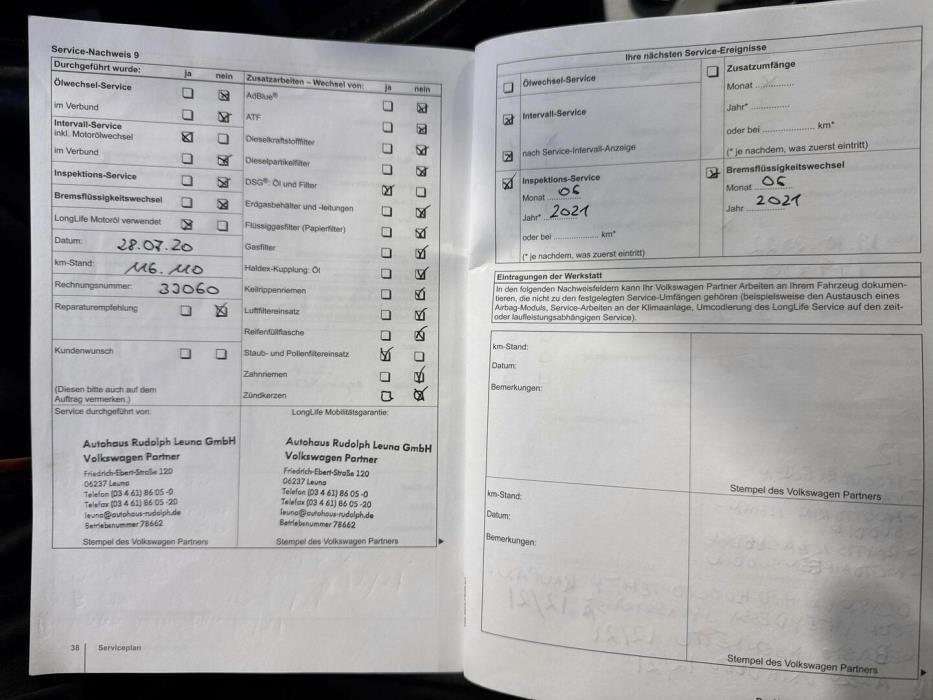 Service-Nachweis 9
Durchgeführt wurde:
ja nein
Ölwechsel-Service
im Verbund
Intervall-Service
inkl. Motorölwechsel
im Verbund
Inspektions-Service
Bremsflüssigkeitswechsel
LongLife Motoröl verwendet
Datum: 28.07.20
km-Stand: 116.110
Rechnungsnummer: 33060
Reparaturempfehlung
Kundenwunsch
(Diesen bitte auch auf dem
Auftrag vermerken.)
Zusatzarbeiten – Wechsel von: ja nein
AdBlue®
ATF
Dieselkraftstofffilter
Dieselpartikelfilter
DSG®: Öl und Filter
Erdgasbehälter und -leitungen
Flüssiggasfilter (Papierfilter)
Gasfilter
Haldex-Kupplung: Öl
Keilrippenriemen
Luftfiltereinsatz
Reifenfüllflasche
Staub- und Pollenfiltereinsatz
Zahnriemen
Zündkerzen
Service durchgeführt von:
Autohaus Rudolph Leuna GmbH
Volkswagen Partner
Friedrich-Ebert-Straße 120
06237 Leuna
Telefon (03 4 61) 86 05 -0
Telefax (03 4 61) 86 05 -20
leuna@autohaus-rudolph.de
Betriebsnummer 78662
Stempel des Volkswagen Partners
LongLife Mobilitätsgarantie:
Autohaus Rudolph Leuna GmbH
Volkswagen Partner
Friedrich-Ebert-Straße 120
06237 Leuna
Telefon (03 4 61) 86 05 -0
Telefax (03 4 61) 86 05 -20
leuna@autohaus-rudolph.de
Betriebsnummer 78662
Stempel des Volkswagen Partners
38 Serviceplan
Ihre nächsten Service-Ereignisse
Ölwechsel-Service
Intervall-Service
nach Service-Intervall-Anzeige
Inspektions-Service
Monat 06
Jahr* 2021
oder bei .................... km*
(* je nachdem, was zuerst eintritt)
Zusatzumfänge
Monat .............
Jahr* .............
oder bei .................... km*
(* je nachdem, was zuerst eintritt)
Bremsflüssigkeitswechsel
Monat 06
Jahr 2021
Eintragungen der Werkstatt
In den folgenden Nachweisfeldern kann Ihr Volkswagen Partner Arbeiten an Ihrem Fahrzeug dokumen-
tieren, die nicht zu den festgelegten Service-Umfängen gehören (beispielsweise den Austausch eines
Airbag-Moduls, Service-Arbeiten an der Klimaanlage, Umcodierung des LongLife Service auf den zeit-
oder laufleistungsabhängigen Service).
km-Stand:
Datum:
Bemerkungen:
Stempel des Volkswagen Partners
km-Stand:
Datum:
Bemerkungen:
Stempel des Volkswagen Partners